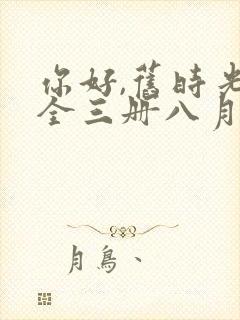 你好,舊時光
全三册八月
月鳥、